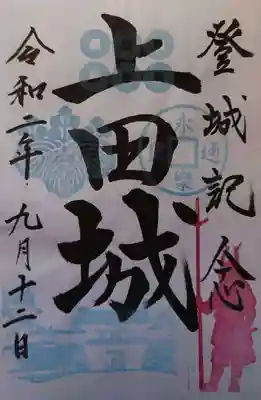 登城記念
上田城
令和二年 九月十二日
永楽通宝